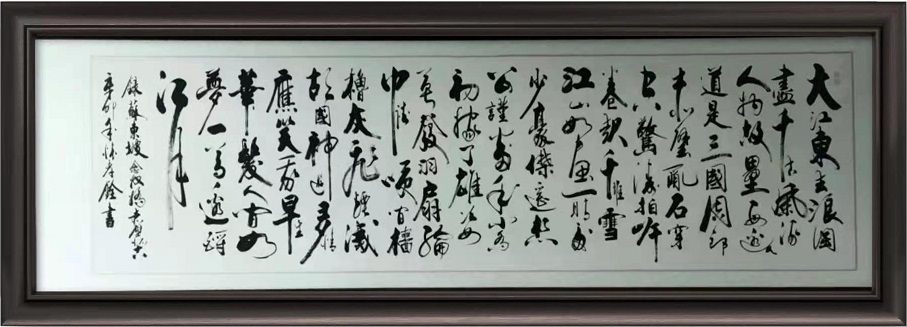 大江東去浪淘
盡千古風流
人物故壘西邊人
道是三國周郎
赤壁亂石穿
空驚濤拍岸
卷起千堆雪
江山如畫一時多
少豪傑遙想
公謹當年小喬
初嫁了雄姿
英發羽扇綸
巾談笑間檣
櫓灰飛煙滅
故國神遊多情
應笑我早生
華髮人間如
夢一尊還酹
江月
錄蘇東坡念奴嬌
辛卯年 書